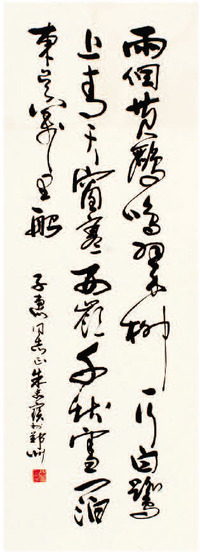 兩個黄鸝鳴翠柳一行白鷺
上青天窗含西嶺千秋雪門泊
東吳萬里船
子惠同志正朱 鄭州